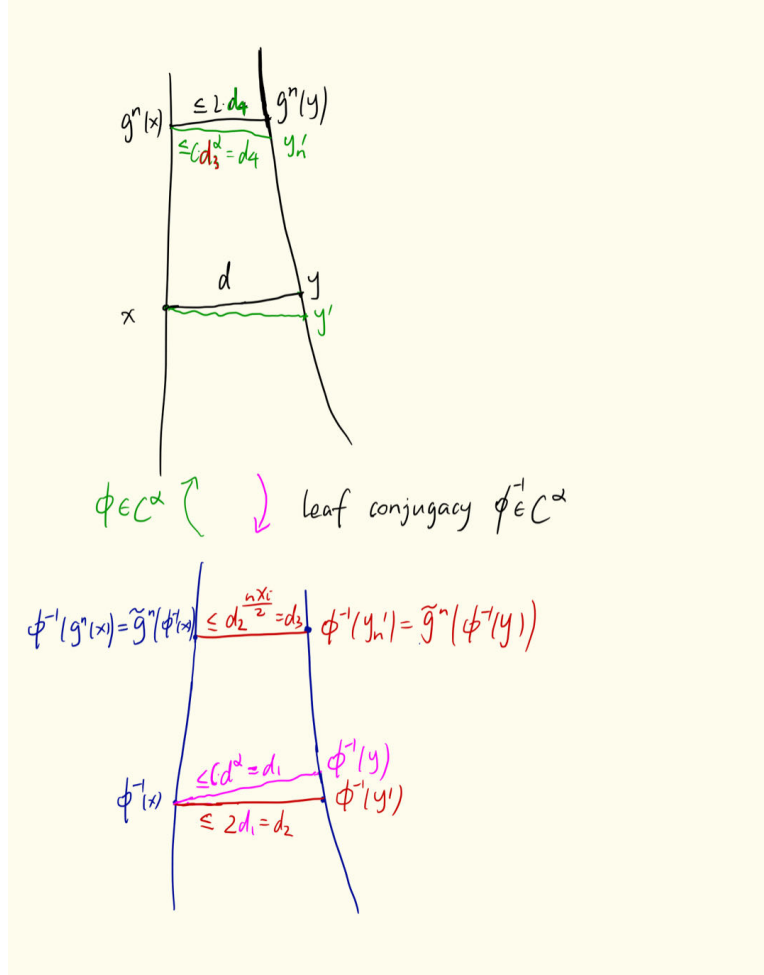 ≤ 2·d₄
gⁿ(x)
gⁿ(y)
≤Cd₃^α = d₄
yₙ′
d
y
x
y′
ϕ∈C^α
leaf conjugacy ϕ⁻¹∈C^α
ϕ⁻¹(gⁿ(x))=g̃ⁿ(ϕ⁻¹(x))
≤ d₂^{nχᵢ/2} = d₃
ϕ⁻¹(yₙ′) = g̃ⁿ(ϕ⁻¹(y))
≤Cd^α = d₁
ϕ⁻¹(y)
ϕ⁻¹(x)
ϕ⁻¹(y′)
≤ 2d₁ = d₂